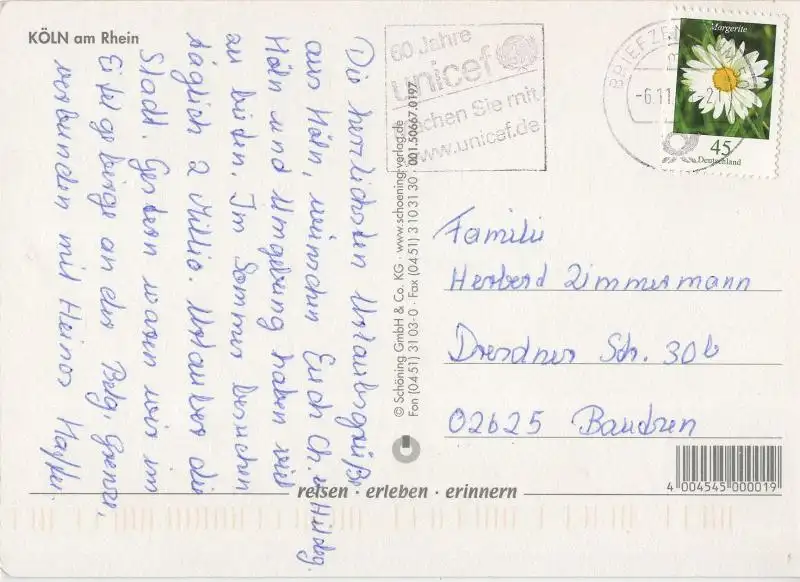 KÖLN am Rhein
Die herzlichsten Urlaubsgrüße
aus Köln, wünschen Euch Ch. u. Hildeg.
Köln und Umgebung haben viel
zu bieten. Im Sommer besuchen
täglich 2 Millio. Urlauber die
Stadt. Gestern waren wir im
Eifelgebirge an der Belg. Grenze,
verbunden mit Heinos
60 Jahre
unicef
machen Sie mit
www.unicef.de
BRIEFZEN
-6.11
Margerite
45
Deutschland
© Schöning GmbH & Co. KG · www.schoening-verlag.de
Fon (04 51) 31 03-0 · Fax (04 51) 3 10 31 30 · 001.50667.0197
Familie
Herberd Zimmermann
Dresdner Str. 30b
02625 Baudzen
4 004545 000019
reisen · erleben · erinnern